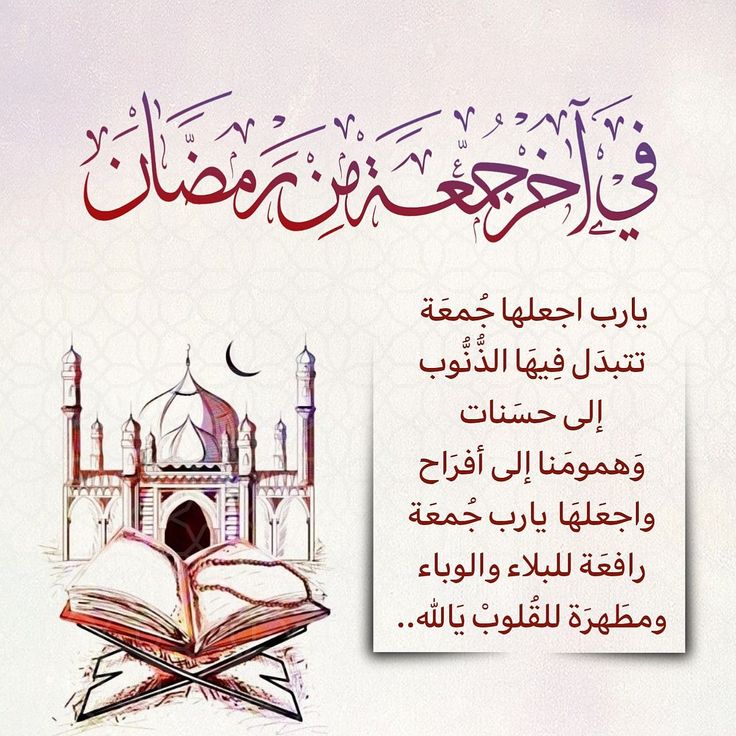 في آخر جُمعَة مِن رَمضَّان
يارب اجعلها جُمعَة
تتبدَل فِيهَا الذُّنُّوب
إلى حسَنات
وَهمومَنا إلى أفرَاح
واجعَلهَا يارب جُمعَة
رافعَة للبلاء والوباء
ومطَهرَة للقُلوبْ يَالله..